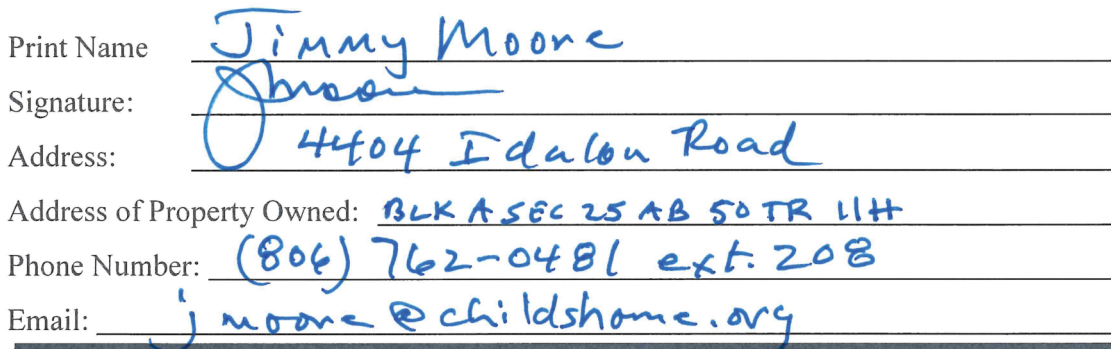 Print Name Jimmy Moore
Signature: JMoore
Address: 4404 Idalou Road
Address of Property Owned: BLK A SEC 25 AB 50 TR 11H
Phone Number: (806) 762-0481 ext. 208
Email: jmoore@childshome.org